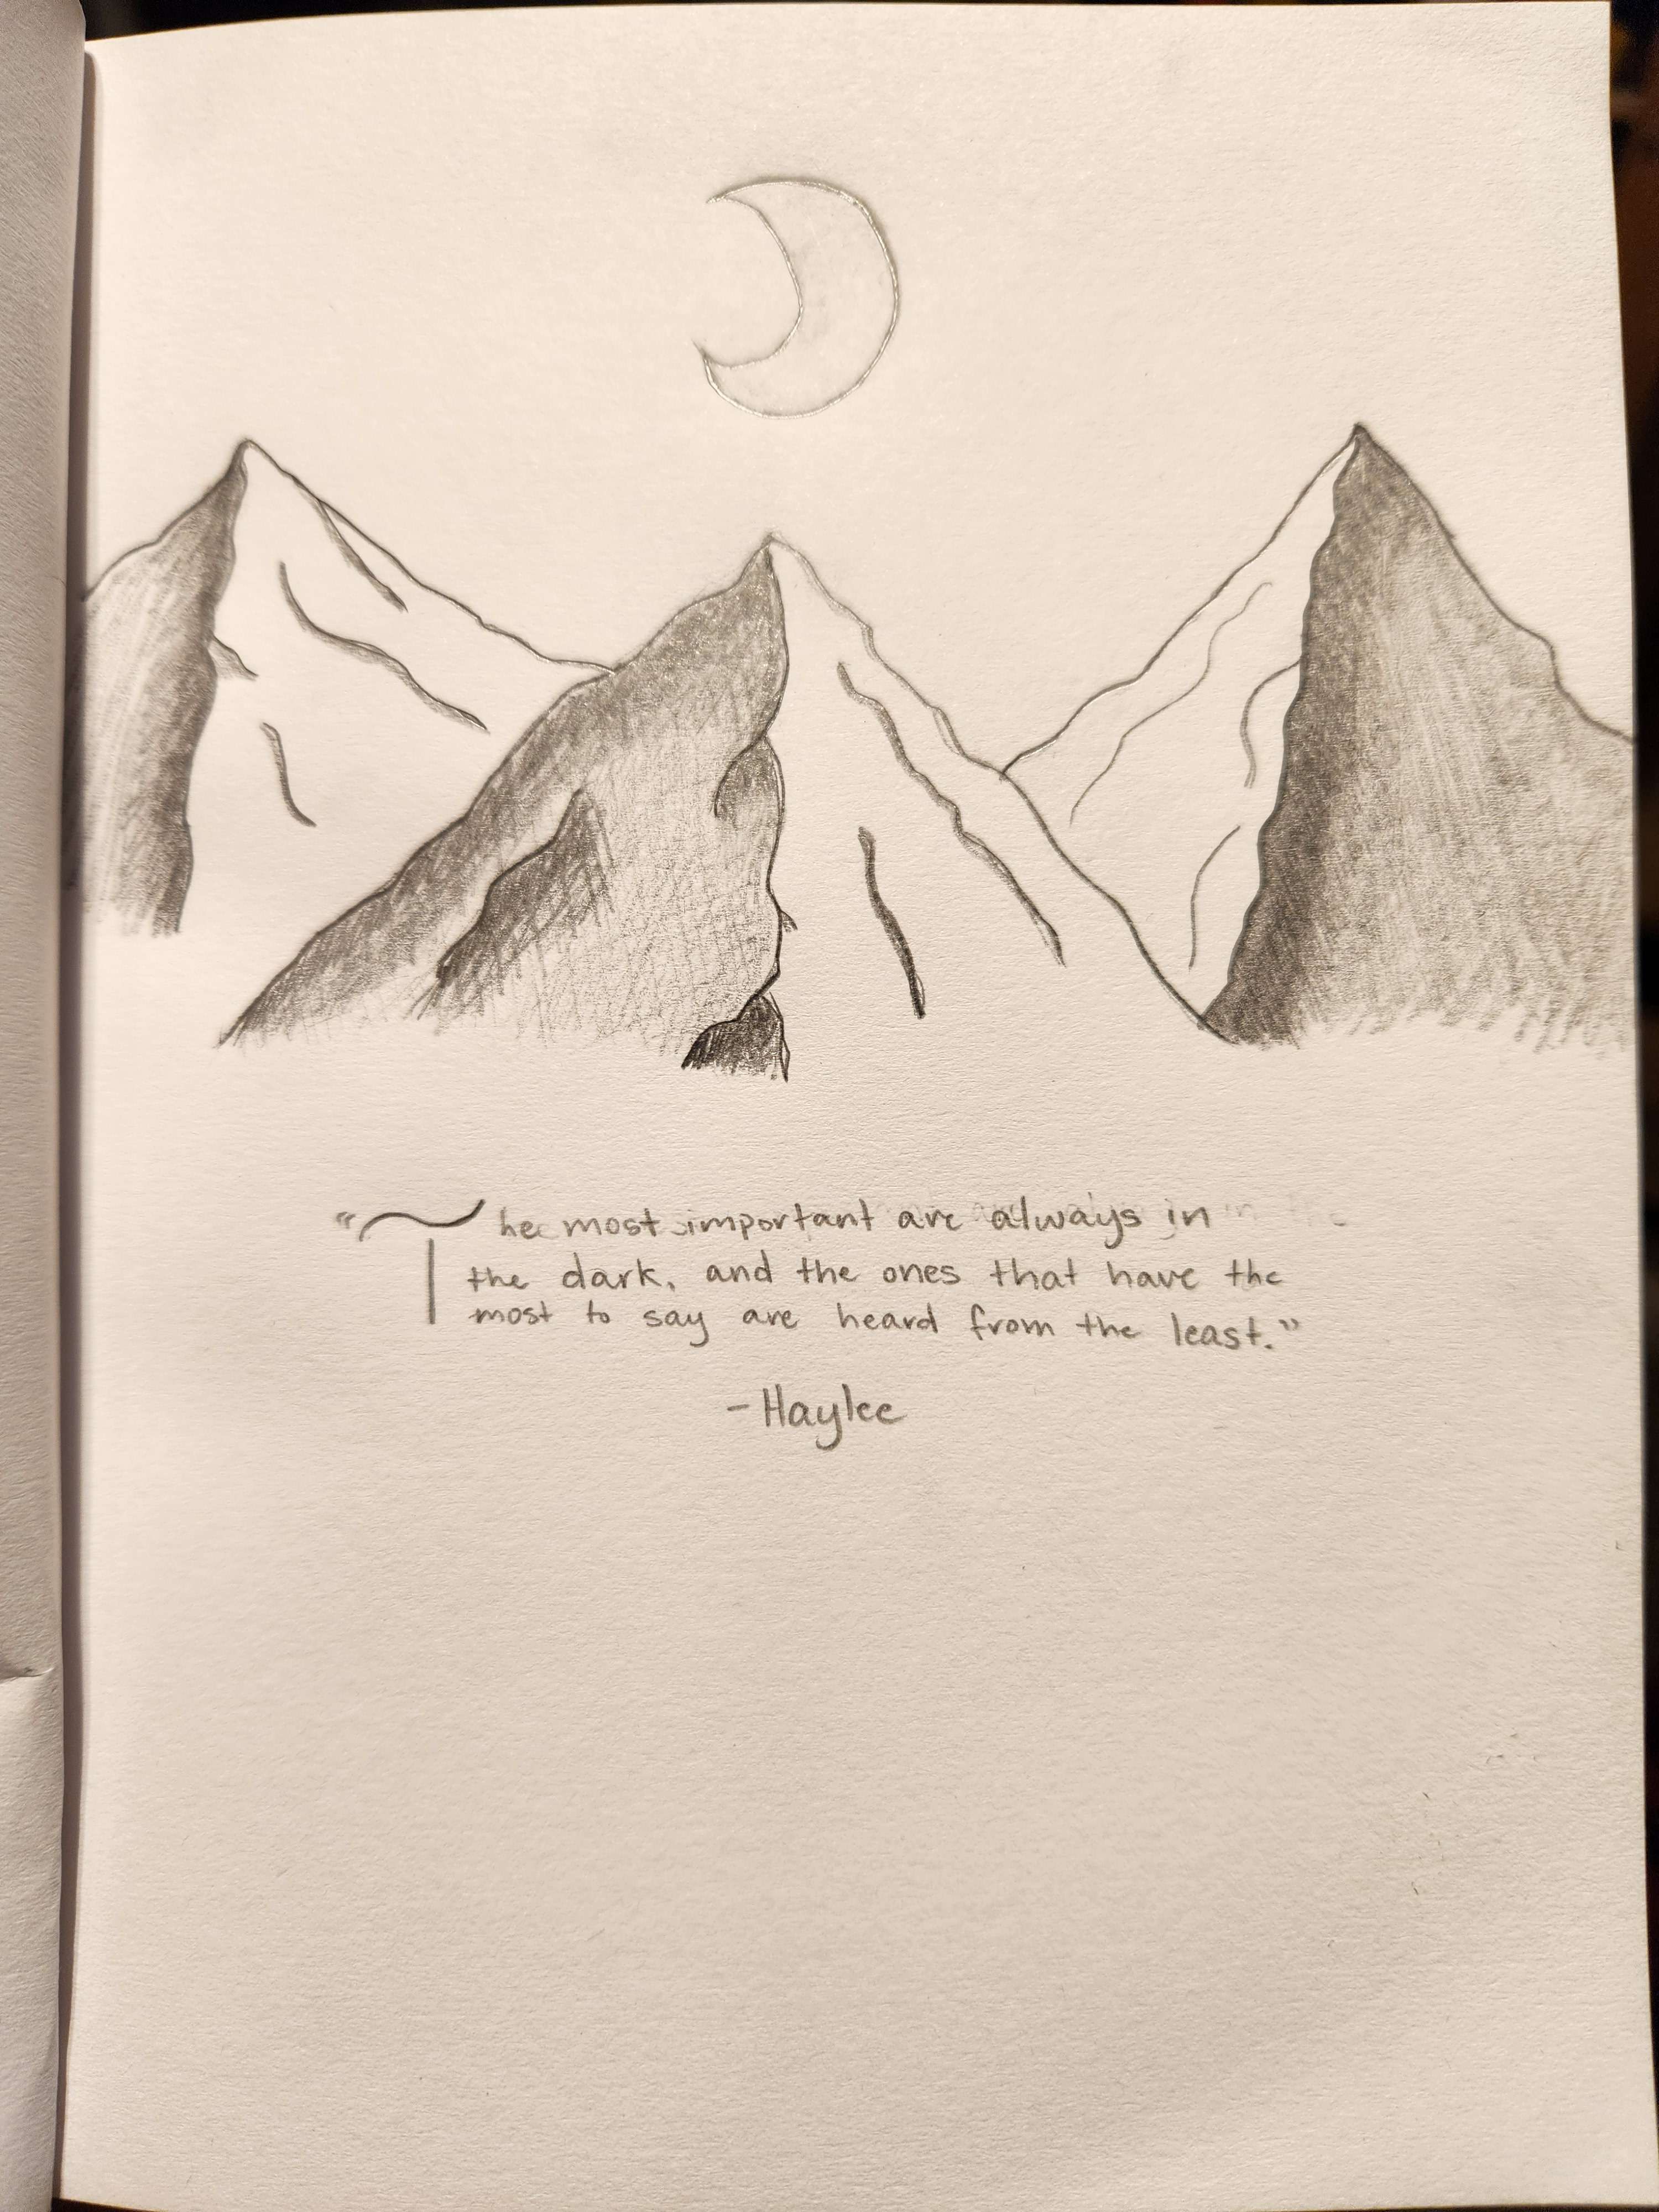 "The most important are always in
the dark, and the ones that have the
most to say are heard from the least."
-Haylee